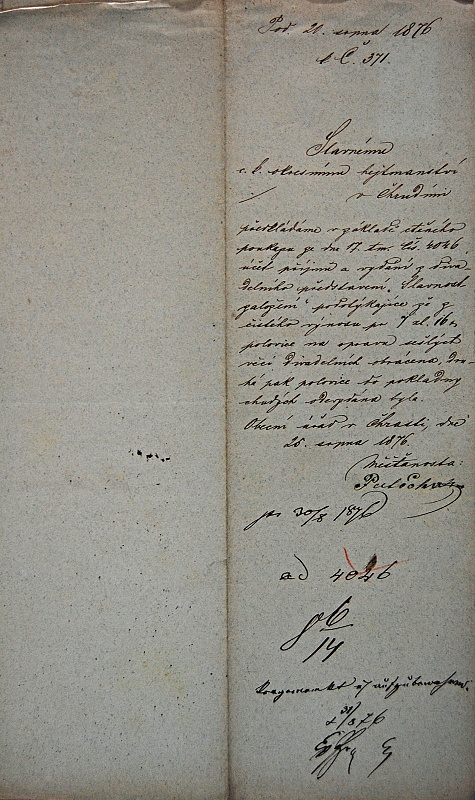 Pod. 21. srpna 1876
k Č. 371.
Slavnému
c. k. okresnímu hejtmanství
v Chrudimi
předkládáme v základě ctěného
poukazu ze dne 17. t.m. čís. 4046
účet příjmu a vydání z diva
delního představení "Slavnost
založení" podotýkajíce že z
čistého výnosu per 7 zl. 16 kr
polovice na opravu sešlých
věcí divadelních obrácena, dru-
há pak polovice do pokladny
chudých odevzdána byla.
Obecní úřad v Chrasti, dne
25. srpna 1876.
Měšťanosta:
pr 30/8 1876
ad 4046
14
aufzubewahren.
31/8 76